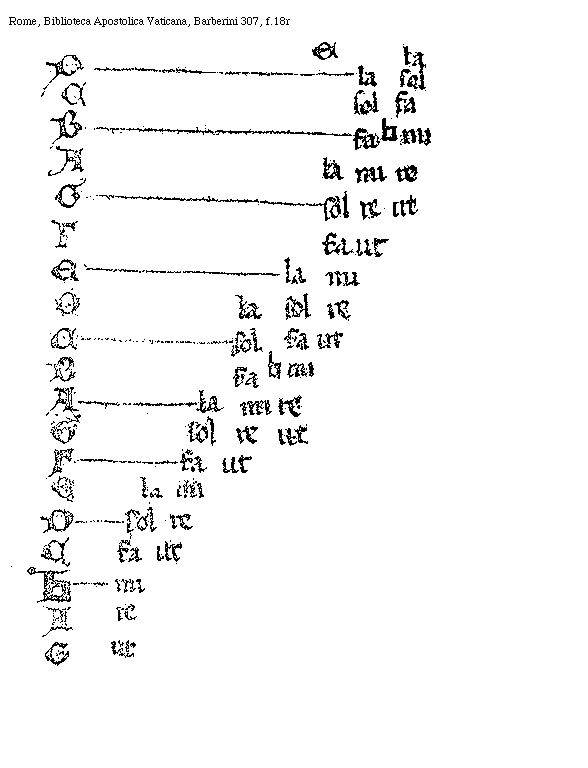 Rome, Biblioteca Apostolica Vaticana, Barberini 307, f.18r
E la
D la sol
C sol fa
B fa ♮ mi
A la mi re
G sol re ut
F fa ut
E la mi
D la sol re
C sol fa ut
B fa ♮ mi
A la mi re
G sol re ut
F fa ut
E la mi
D sol re
C fa ut
♮ mi
A re
G ut